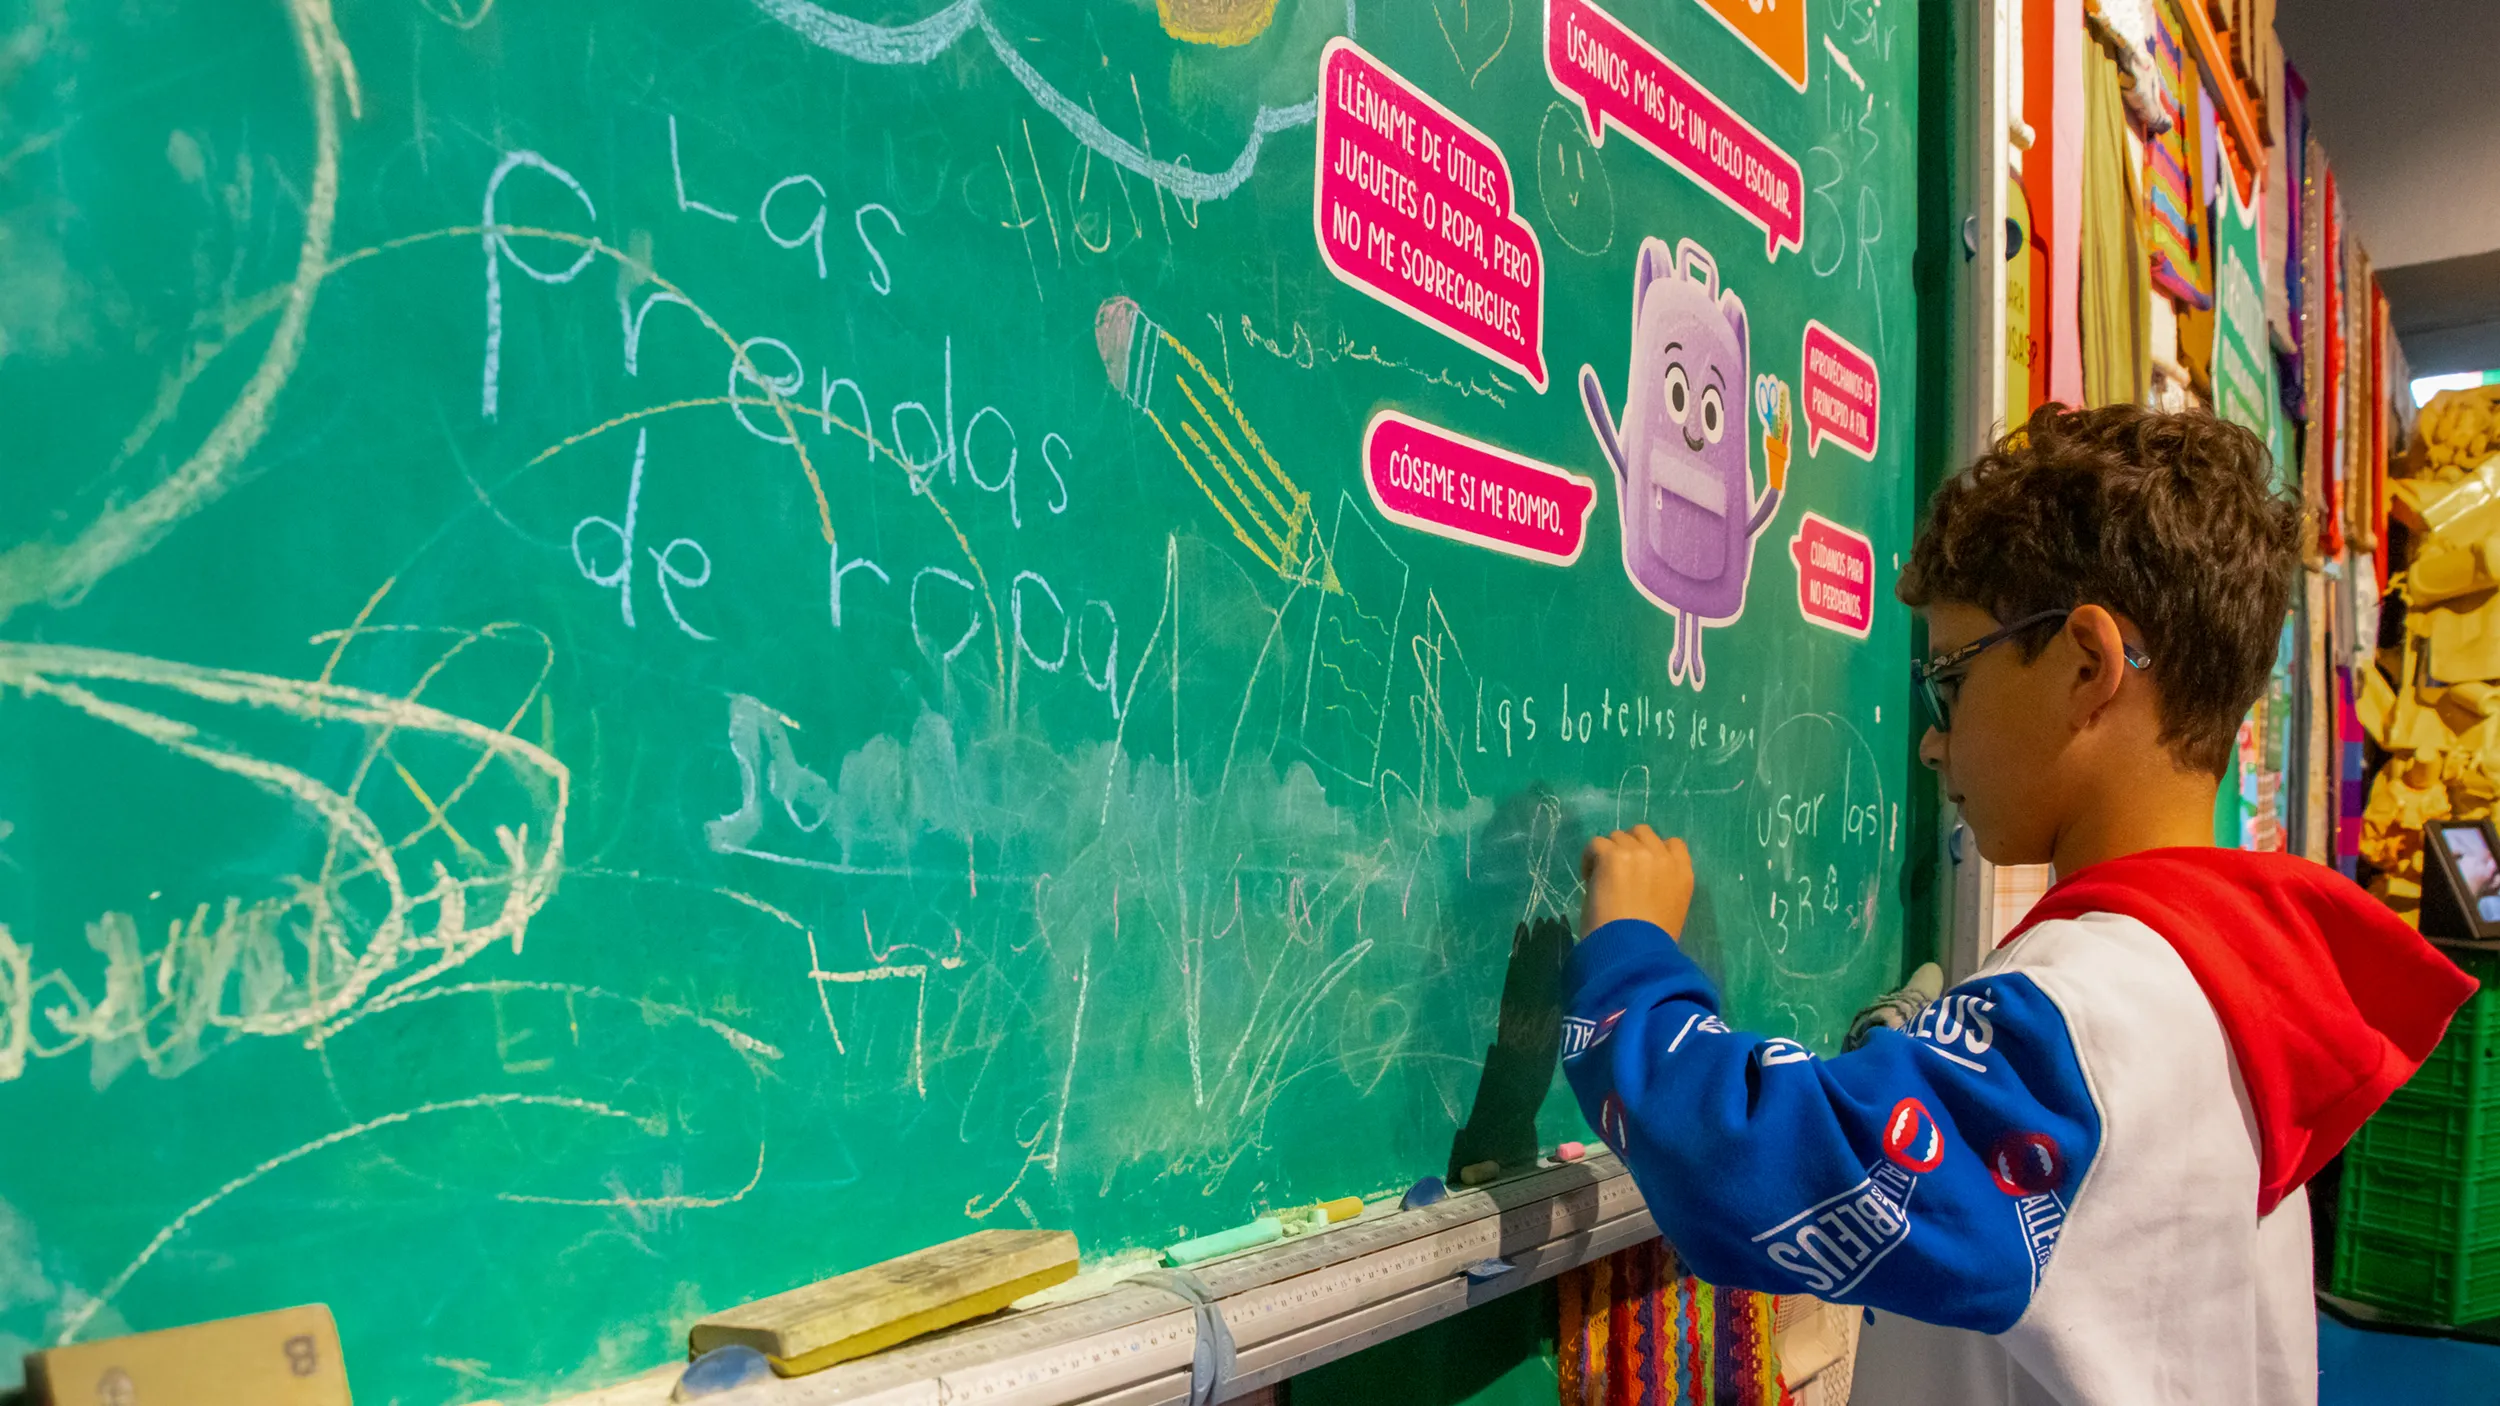 Las
prendas
de ropa
HOLA
LLÉNAME DE ÚTILES,
JUGUETES O ROPA, PERO
NO ME SOBRECARGUES.
ÚSANOS MÁS DE UN CICLO ESCOLAR.
CÓSEME SI ME ROMPO.
APROVÉCHANOS DE
PRINCIPIO A FIN.
CUÍDANOS PARA
NO PERDERNOS.
usar
las
3R
Las botellas de
usar las
3R
ALL
LEUS
BLEUS
ALL
8